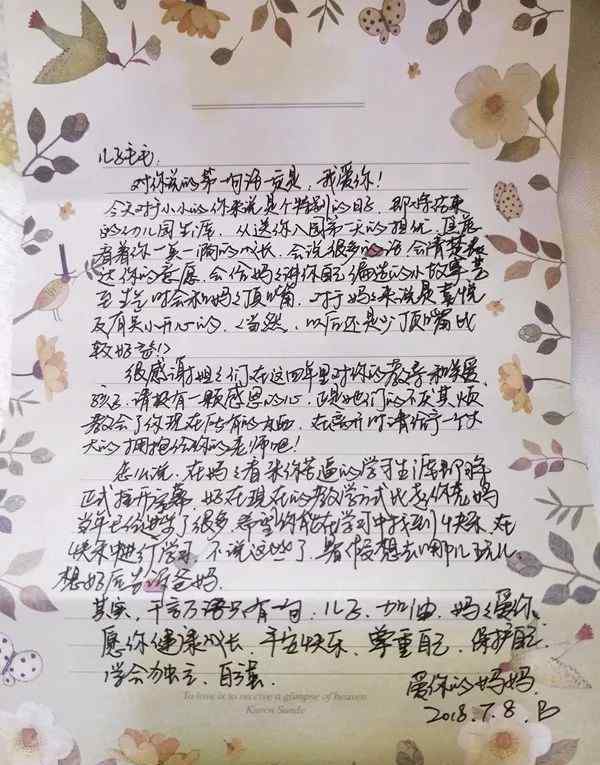 儿子毛毛:
对你说的第一句话一定是,我爱你!
今天对于小小的你来说是个特别的日子,即将结束
的幼儿园生涯,从送你入园第一天的担忧,直至
看着你一点一滴的成长,会说很多的话,会清楚表
达你的意愿,会给妈妈讲你自己编造的小故事,甚
至生气时会和妈妈顶嘴,对于妈妈来说是喜悦
及有点小开心的,(当然,以后还是少顶嘴比
较好哈!)
很感谢姐姐们在这四年里对你的教育和关爱,
孩子,请你有一颗感恩的心,正是她们的不厌其烦
教会了你现在所有的本领,在离开时请给予一个大
大的拥抱给你的老师吧!
怎么说,在妈妈看来你苦逼的学习生涯即将
正式拉开序幕,好在现在的教学方式比起你老妈
当年已经进步了很多,希望你能在学习中找到快乐,在
快乐中进行学习,不说这些了,暑假想去哪儿玩儿,
想好后告诉爸妈.
其实,千言万语只有一句:儿子,加油,妈妈爱你,
愿你健康成长,平安快乐,尊重自己,保护自己,
学会独立、自强.
To love is to receive a glimpse of heaven
Karen Sunde
爱你的妈妈.
2018.7.8.日